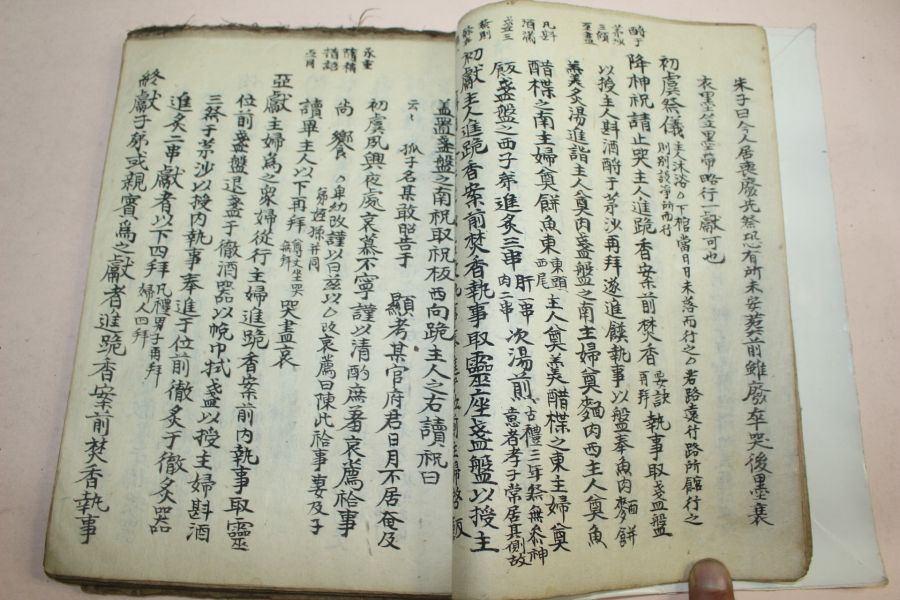 朱子曰今人居喪廢先祭恐有所未安葬前雖廢卒哭後墨衰
衣墨笠墨帶略行一獻可也
初虞祭儀
主人沐浴
下棺當日日未落而行之
若路遠行路所館行之
降神祝請止哭主人進跪香案前焚香
再拜
執事取盞盤
以授主人斟酒酹于茅沙再拜遂進饌執事以盤奉魚肉
麵餅
羹炙湯進詣主人奠肉盞盤之南主婦奠麵肉西主人奠魚
醋楪之南主婦奠餅魚東
東頭
西尾
主人奠羹醋楪之東主婦奠
飯盞盤之西子弟進炙三串
肝一串
肉二串
次湯前
古禮三年祭無參神
意者孝子常居其側故
初獻主人進跪香案前焚香執事取靈座盞盤以授主
酹于
茅沙
三傾
至盡
凡斟
酒滿
盞三
盖置盞盤之南祝取祝板西向跪主人之右讀祝曰
云〻
孤子名某敢昭告于
顯考某官府君日月不居奄及
初虞夙興夜處哀慕不寧謹以清酌庶羞哀薦祫事
尚
饗
卑幼改謹以曰玆以
改哀薦曰陳此祫事
妻及子
讀畢主人以下再拜
哭盡哀
亞獻主婦爲之衆婦從行主婦進跪香案前內執事取靈
位前盞盤退盞于徹酒器以帨巾拭盞以授主婦斟酒
三祭于茅沙以授內執事奉進于位前徹炙于徹炙器
進炙二串獻者以下四拜
凡禮男子再拜
婦人四拜
終獻子弟或親賓爲之獻者進跪香案前焚香執事